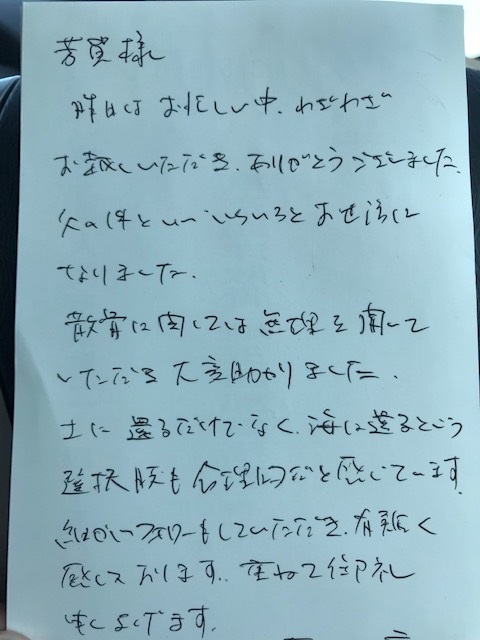 芳賀様
昨日は お忙しい中、わざわざ
お越しいただき、ありがとうございました。
父の件といい、いろいろとお世話に
なりました。
散骨に関しては無理を聞いて
いただき 大変助かりました。
土に 還るだけでなく、海に還るという
選択肢も合理的だと感じています。
細かいフォローもしていただき、有難く
感じております。重ねて御礼
申し上げます。